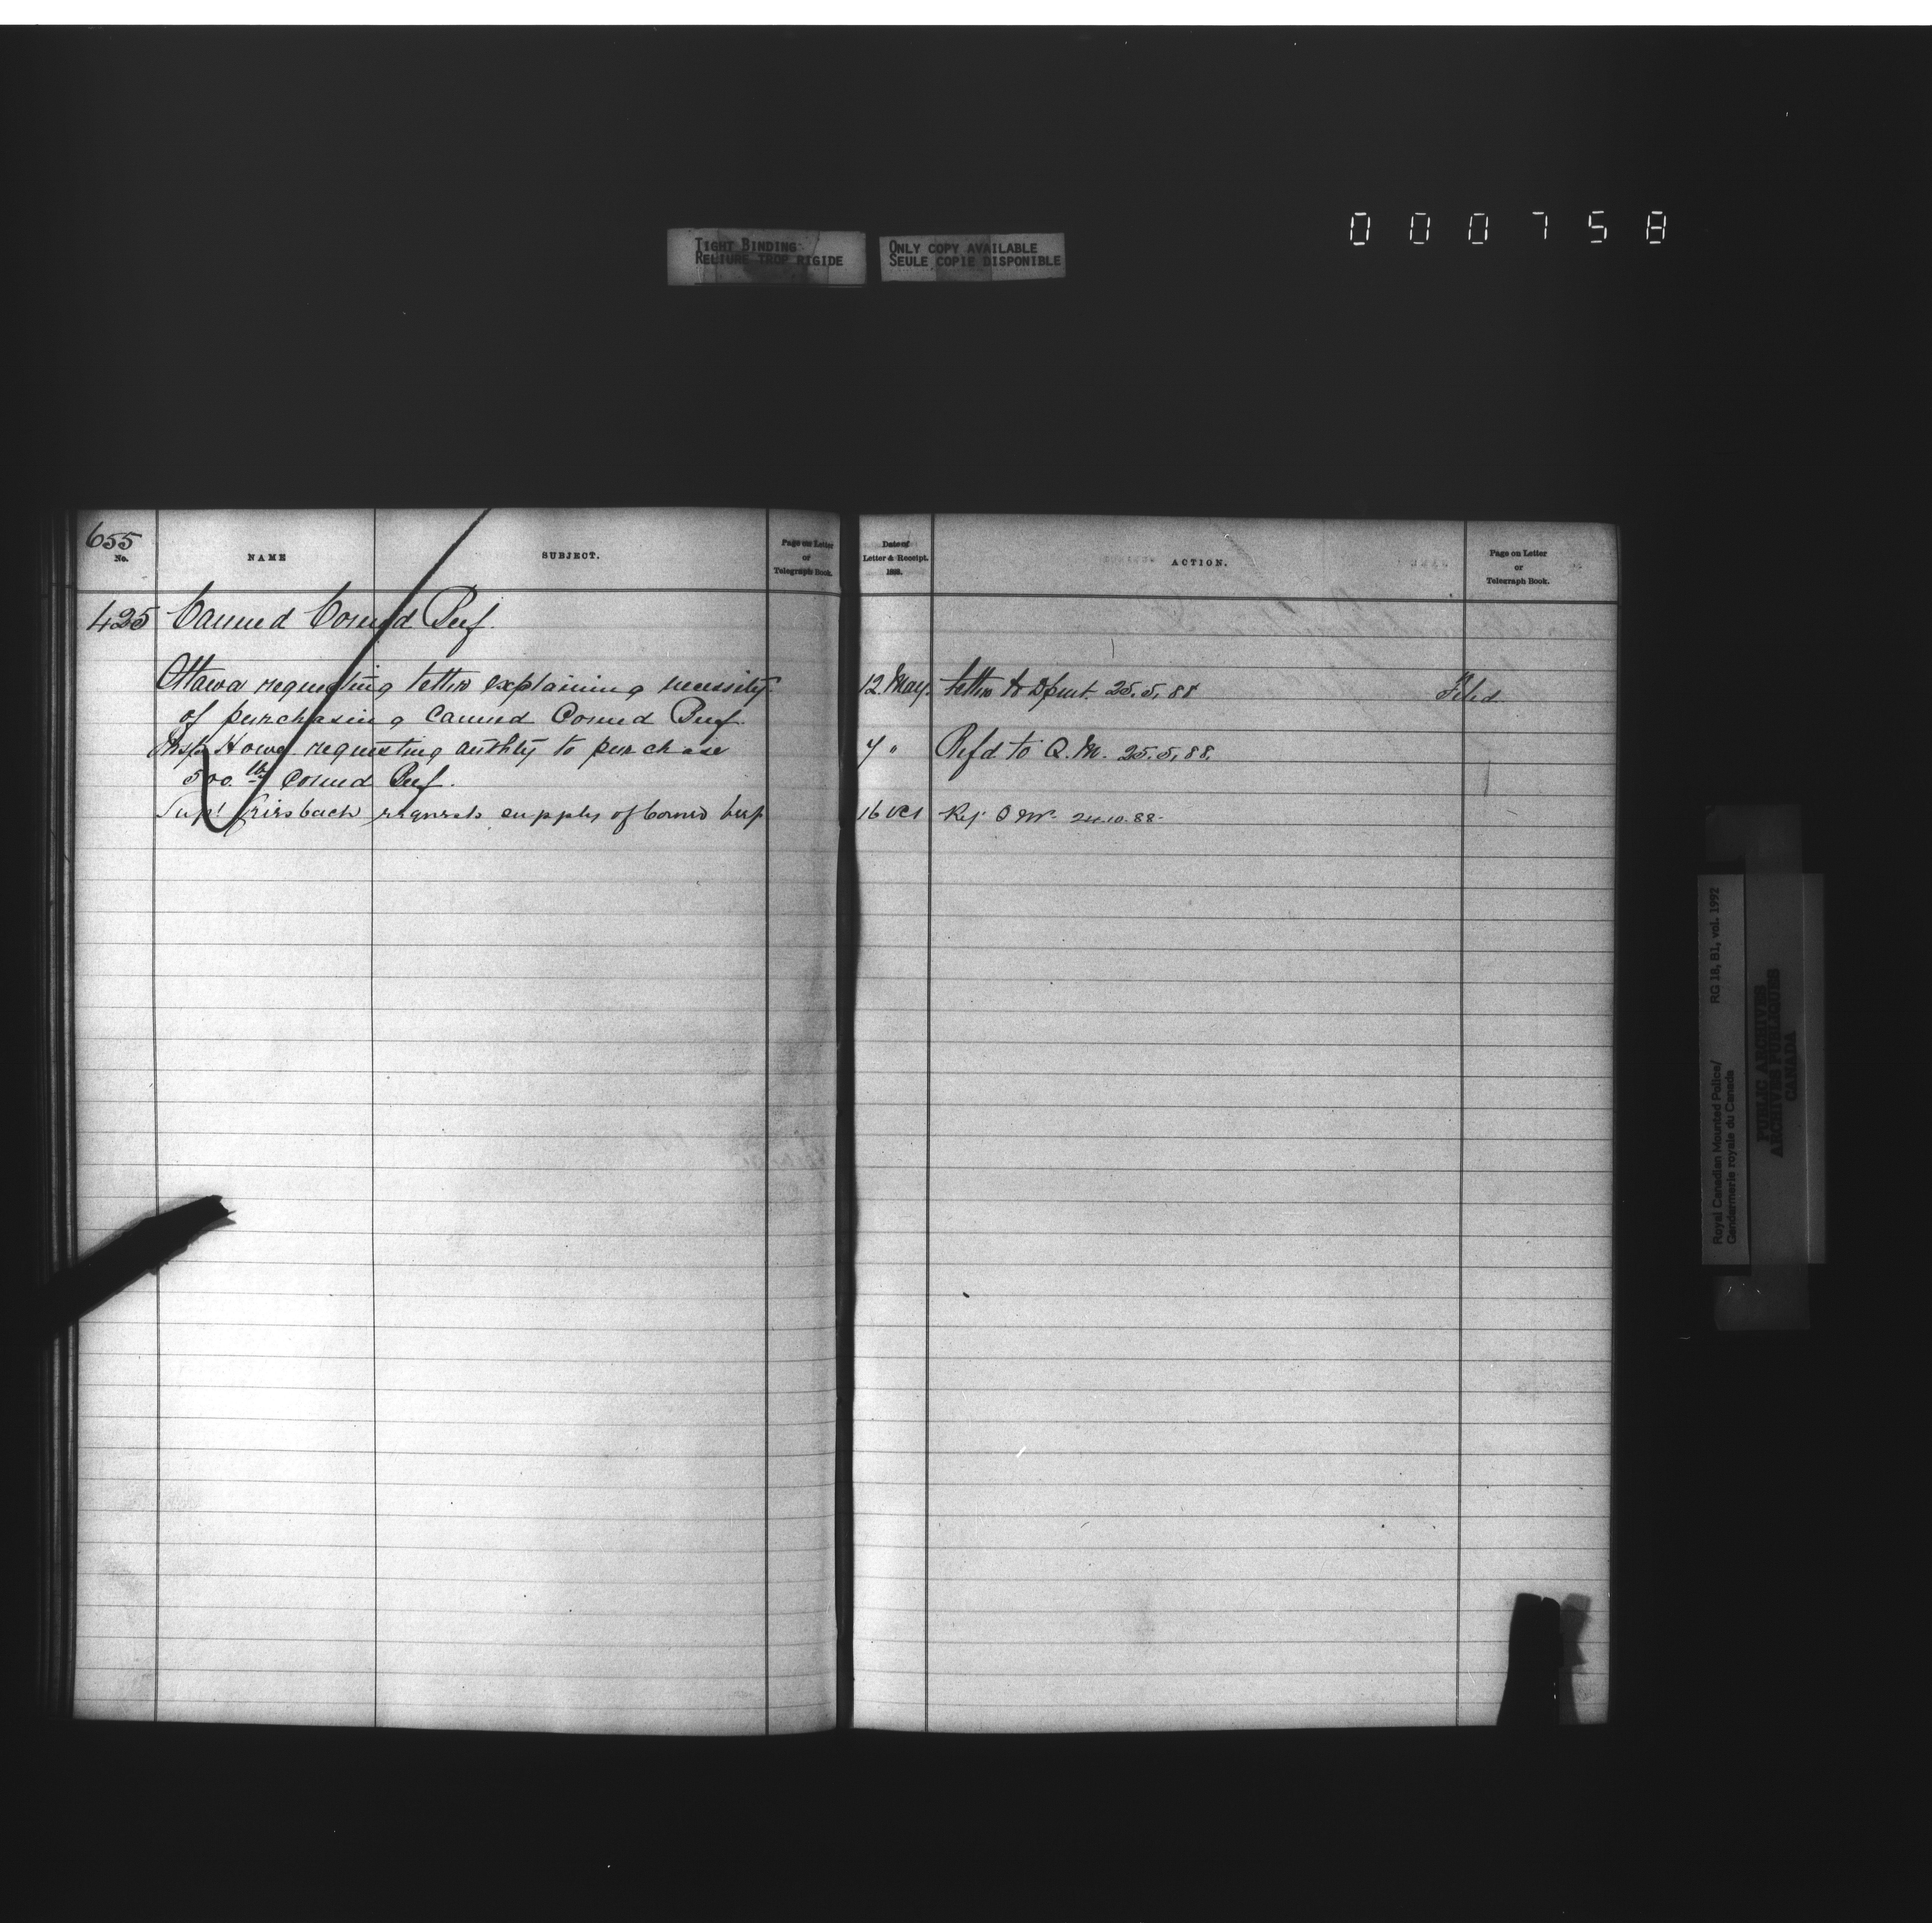 000758
TIGHT BINDING
RELIURE TROP RIGIDE
ONLY COPY AVAILABLE
SEULE COPIE DISPONIBLE
655
No.
NAME
SUBJECT.
Page on Letter
or
Telegraph Book.
Date of
Letter & Receipt.
1888.
ACTION.
Page on Letter
or
Telegraph Book.
425 Canned Corned Beef.
Ottawa requesting letter explaining necessity 12 May. Letter to Dpmt. 25.5.88 Filed
of purchasing Canned Corned Beef.
Howe requesting authty to purchase 7 " Refd to Q.M. 25.5.88.
500 lbs Corned Beef.
Supt Griesbach requests supply of Corned beef 16 Oct Ref. Q M. 24.10.88.
Royal Canadian Mounted Police/ RG 18, B1, vol. 1992
Gendarmerie royale du Canada
PUBLIC ARCHIVES
ARCHIVES PUBLIQUES
CANADA